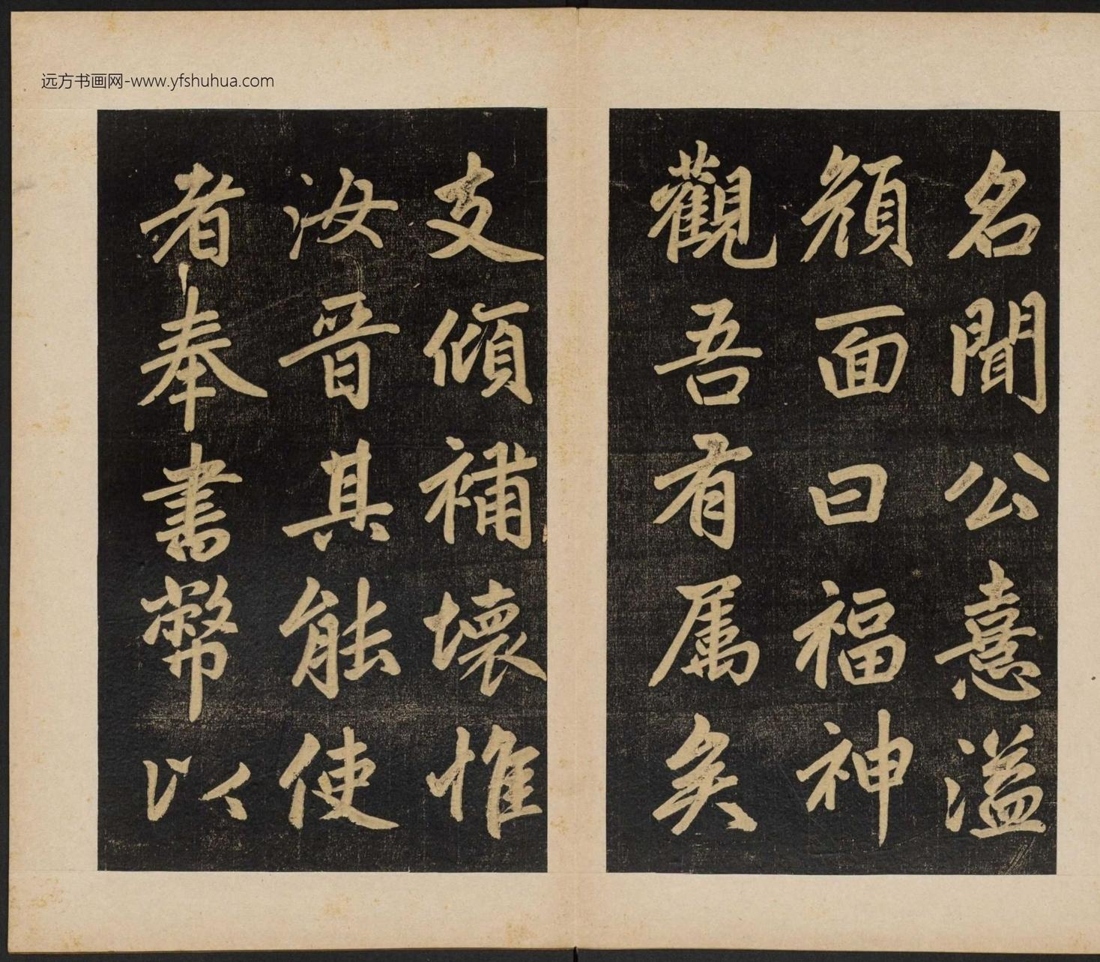 远方书画网-www.yfshuhua.com
名聞公憙溢
顔面曰福神
觀吾有属矣
支傾補壞惟
汝晋其能使
者奉書幣以